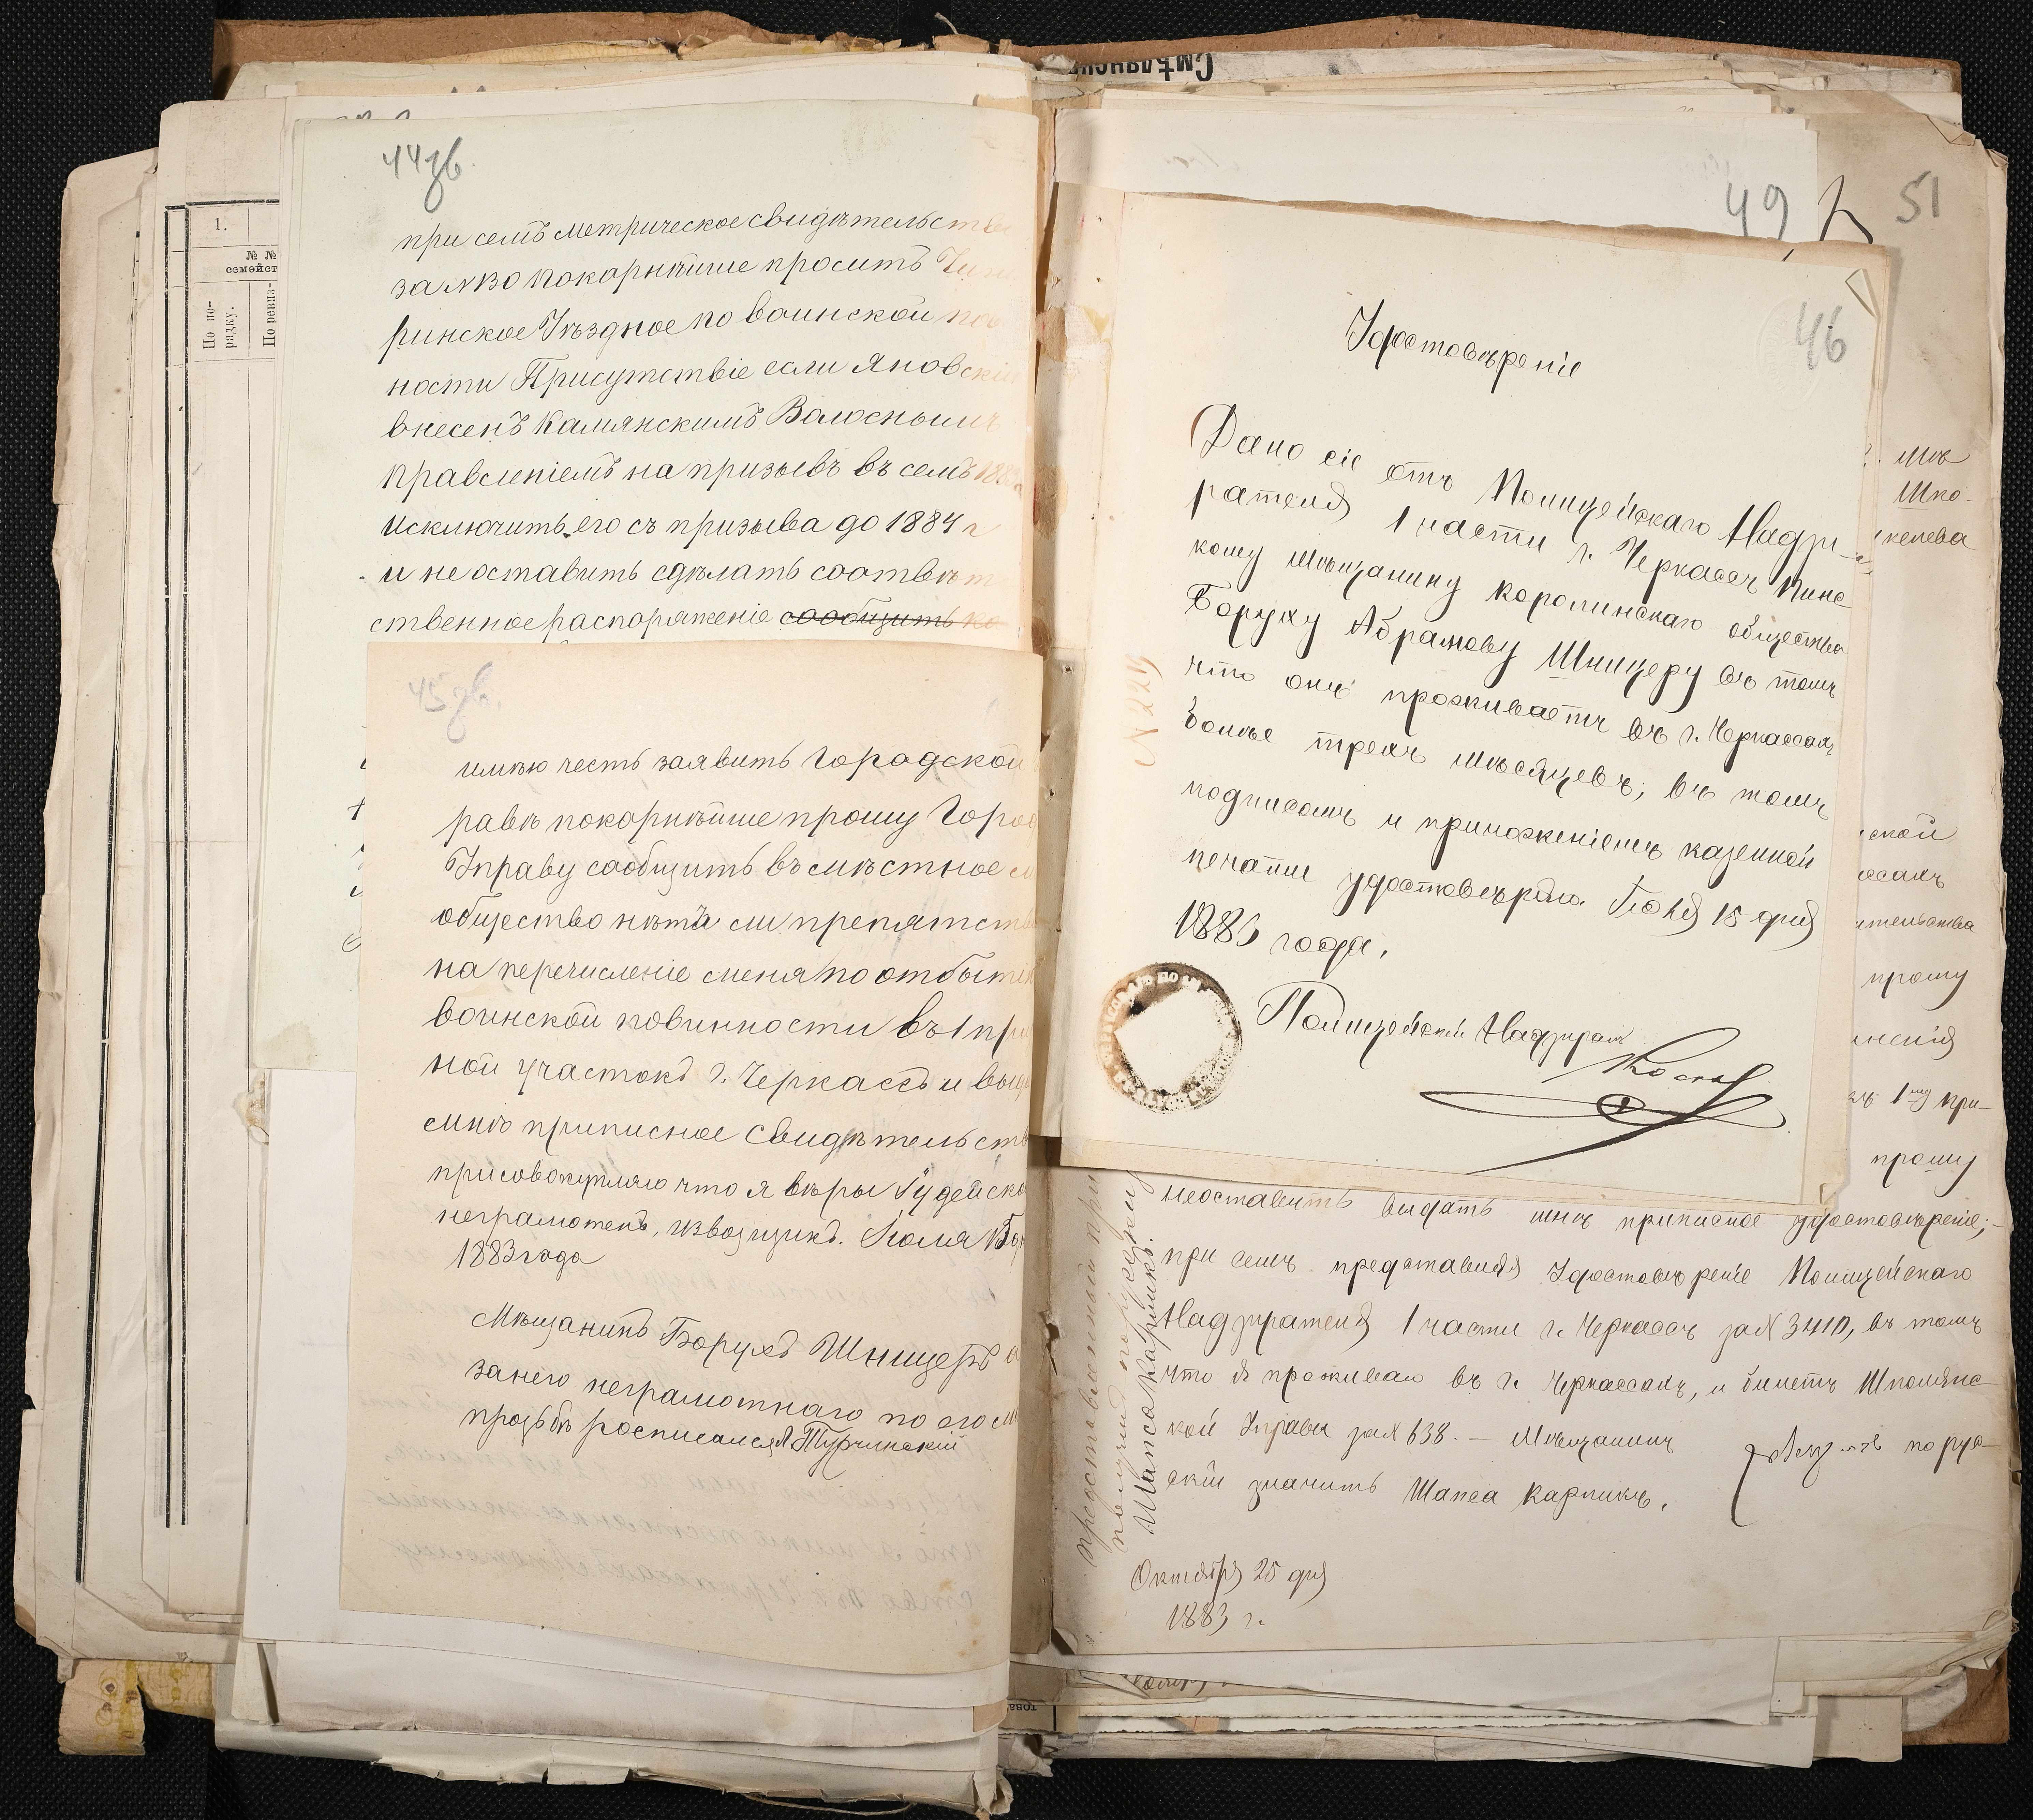 Смѣлянск
44 зв.
при семъ метрическое свидѣтельство
за № 30 покорнѣйше просить Чиги
ринское Уѣздное по воинской пов
ности Присутствіе если Яновскій
внесенъ Камянскимъ Волоснымъ
Правленіемъ на призывъ въ семъ 188
исключить его съ призыва до 1884 г
и не оставить сдѣлать соотвѣт
ственное распоряженіе сообщить ко
1.
№ №
семейст
По по-
рядку.
По ревиз-
45 зв.
имѣю честь заявить Городской
равѣ покорнѣйше прошу Город
Управу сообщить въ мѣстное
общество нѣтъ ли препятств
на перечисленіе меня по отбытіи
воинской повинности въ 1 при
ной участокъ г. Черкассъ и выда
мнѣ приписное свидѣтельств
присовокупляю что я вѣры Іудейско
неграмотенъ, извозщикъ. Іюля 15
1883 года
Мѣщанинъ Борухъ Шницеръ а
за него неграмотнаго по его
прозьбѣ росписался А. Турчинскій
49
51
46
Удостовѣреніе
Дано сіе отъ Полицейскаго Надзи-
рателя 1 части г. Черкассъ Пинс
кому мѣщанину Каролинскаго общества
Боруху Абрамову Шницеру въ томъ
что онъ проживаетъ въ г. Черкассахъ
болѣе трехъ мѣсяцевъ; въ томъ
подписомъ и приложеніемъ казенной
печати удостовѣряю. Іюля 15 дня
1883 года.
Полицейскій Надзират
№ 2229
Шпо-
ской
прошу
1му при-
прошу
неоставить выдать мнѣ приписное удостовѣреніе;-
при семъ представляя Удостовѣреніе Полицейскаго
Надзирателя 1 части г. Черкассъ за № 3410, въ томъ
что я проживаю въ г. Черкассахъ, и билетъ Шполянс-
кой Управы за № 638. – Мѣщанинъ
по рус-
скій значитъ Шапса Карликъ.
Октября 25 дня
1883 г.
Шапса Карликъ.